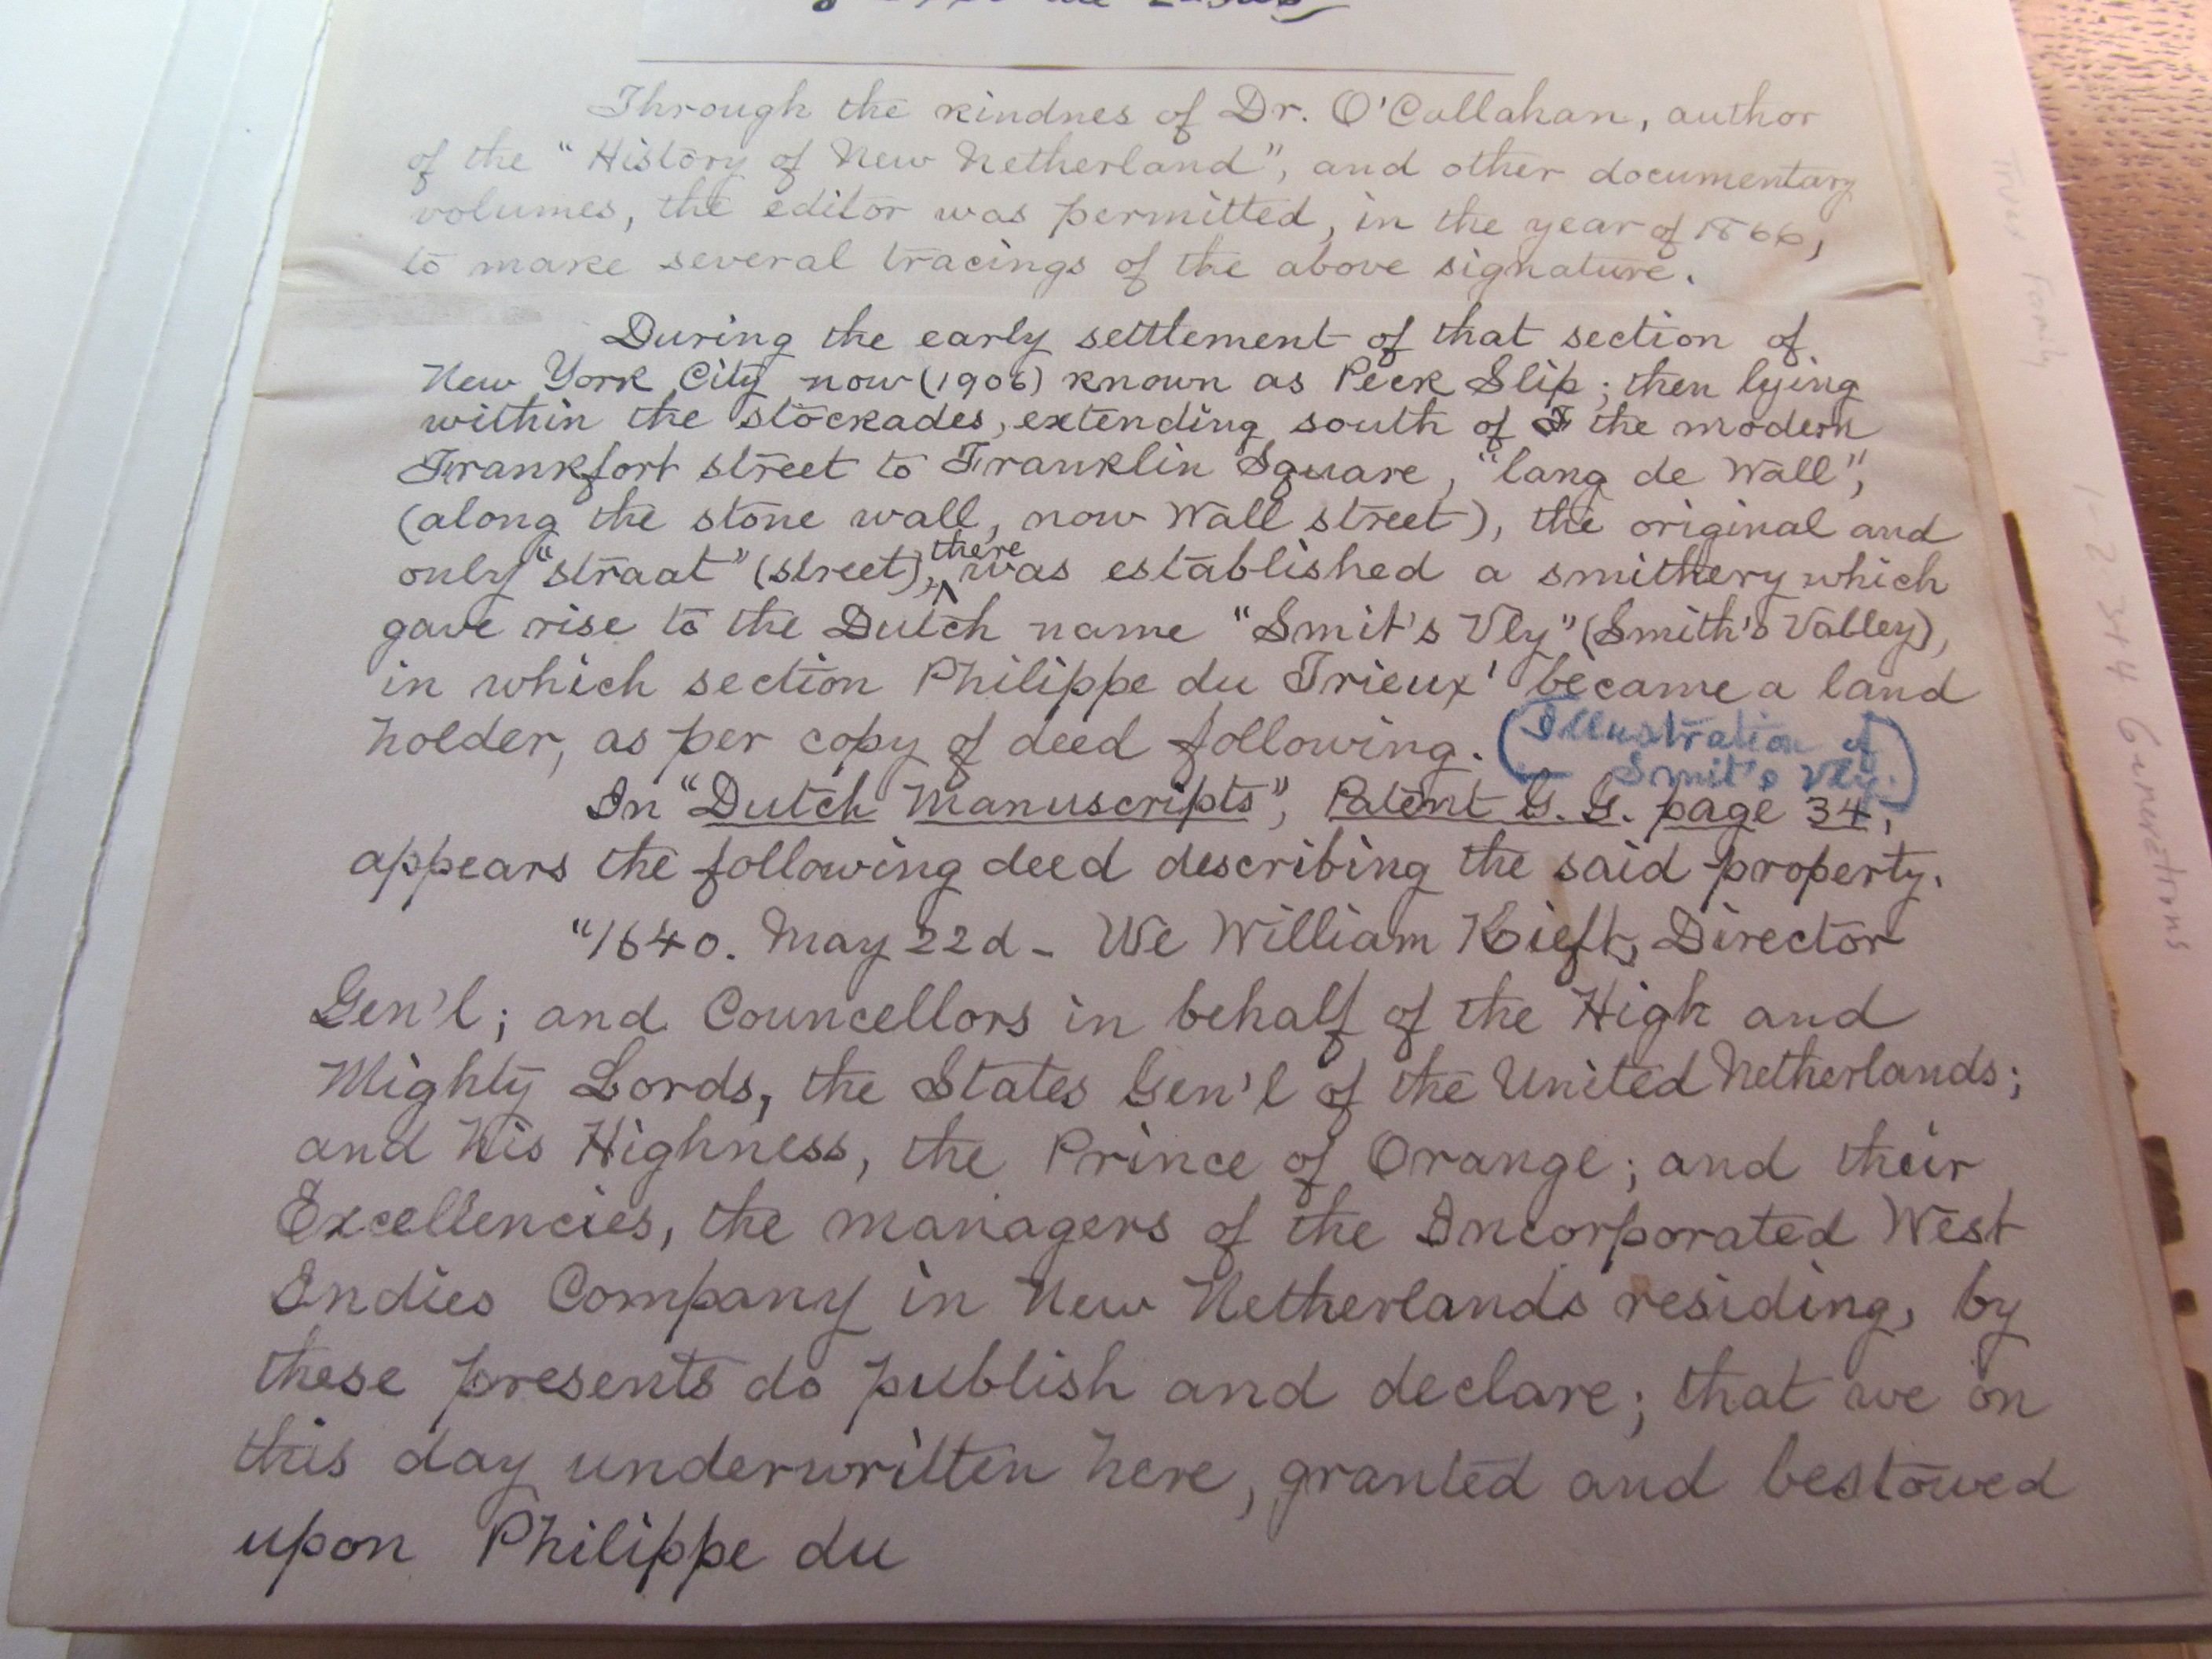 Through the kindnes of Dr. O'Callahan, author
of the "History of New Netherland", and other documentary
volumes, the editor was permitted, in the year of 1866,
to make several tracings of the above signature.
During the early settlement of that section of
New York City now (1906) known as Peck Slip; then lying
within the stockades, extending south of the modern
Frankfort street to Franklin Square, "lang de Wall",
(along the stone wall, now Wall street), the original and
only "straat" (street), there was established a smithery which
gave rise to the Dutch name "Smit's Vly" (Smith's Valley),
in which section Philippe du Trieux' became a land
holder, as per copy of deed following. (Illustration of
Smit's Vly.)
In "Dutch Manuscripts", Patent G. G. page 34,
appears the following deed describing the said property.
"1640. May 22d - We William Kieft, Director
Gen'l; and Councellors in behalf of the High and
Mighty Lords, the States Gen'l of the United Netherlands;
and his Highness, the Prince of Orange; and their
Excellencies, the managers of the Incorporated West
Indies Company in New Netherlands residing, by
these presents do publish and declare; that we on
this day underwritten here, granted and bestowed
upon Philippe du
Family
1-2 3+4 Generations